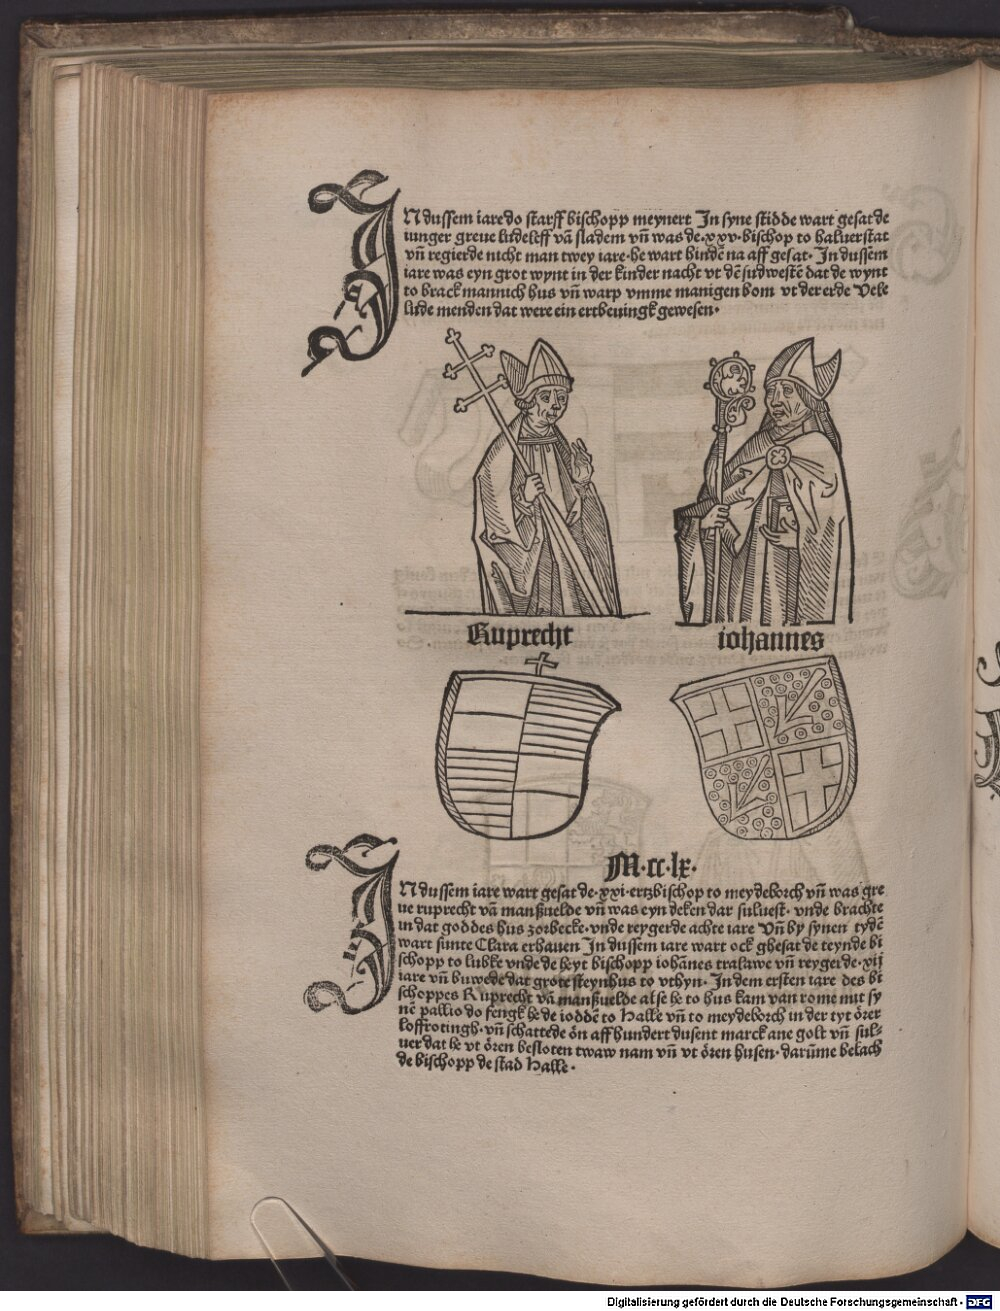 IN dussem iare do starff bischopp meynert In syne stidde wart gesat de
iunger greue ludeleff vā sladem vn̄ was de·xxv·bischop to haluerstat
vn̄ regierde nicht man twey iare·he wart hindē na aff gesat·In dussem
iare was eyn grot wynt in der kinder nacht vt dē sudwestē dat de wynt
to brack mannich hus vn̄ warp vmme manigen bom vt der erde Vele
lude menden dat were ein ertbeuingk gewesen·
Ruprecht
iohannes
M·cc·lx·
IN dussem iare wart gesat de·xxi·ertzbischop to meydeborch vn̄ was gre
ue ruprecht vā manßuelde vn̄ was eyn deken dar suluest·vnde brachte
in dat goddes hus zorbecke·vnde reygerde achte iare Vn̄ by synen tydē
wart sunte Clara erhauen In dussem iare wart ock ghesat de teynde bi
schopp to lubke vnde de heyt bischopp iohānes tralawe vn̄ reygerde·xij
iare vn̄ buwede dat grote steynhus to vthyn·In dem ersten iare des bi
schoppes Ruprecht vā manßuelde alse he to hus kam van rome mit sy
nē pallio do fengk he de ioddē to Halle vn̄ to meydeborch in der tyt örer
loffrotingh·vn̄ schattede ön aff hundert dusent marck ane golt vn̄ sul⸗
uer dat he vt ören besloten twaw nam vn̄ vt ören husen·darūme belach
de bischopp de stad Halle·
Digitalisierung gefördert durch die Deutsche Forschungsgemeinschaft - DFG